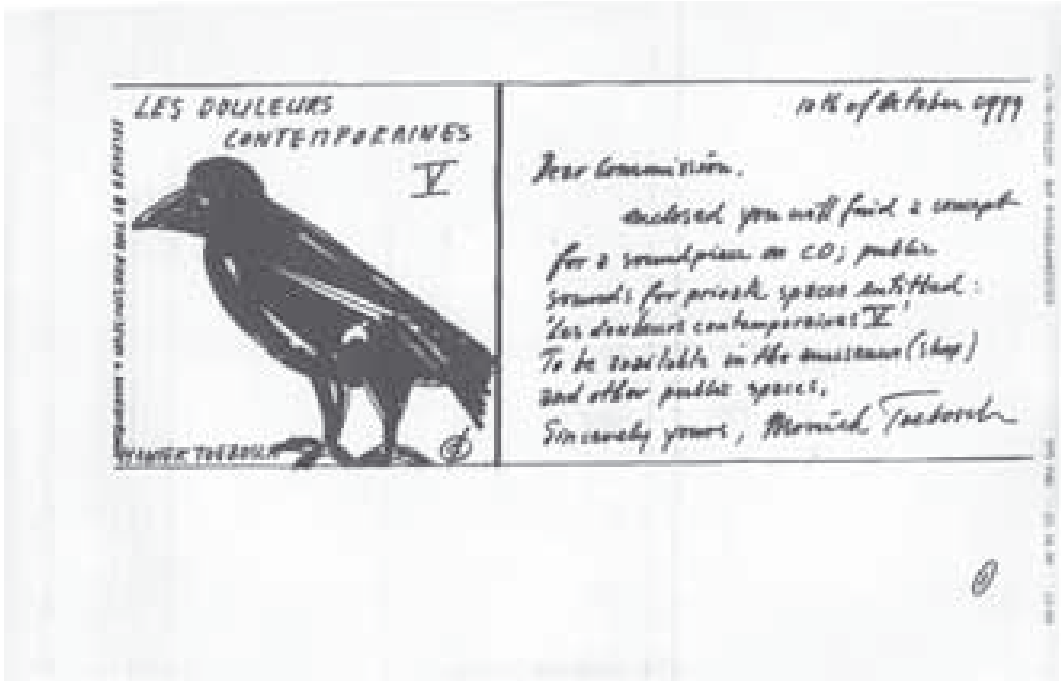 LES DOULEURS
CONTEMPORAINES
V
MONIEK TOEBOSCH
10th of October 1999
Dear Commission.
enclosed you will find a concept
for a soundpiece on CD; public
sounds for private spaces entitled:
'Les douleurs contemporaines V'
To be available in the museum (shop)
and other public spaces.
Sincerely yours, Moniek Toebosch